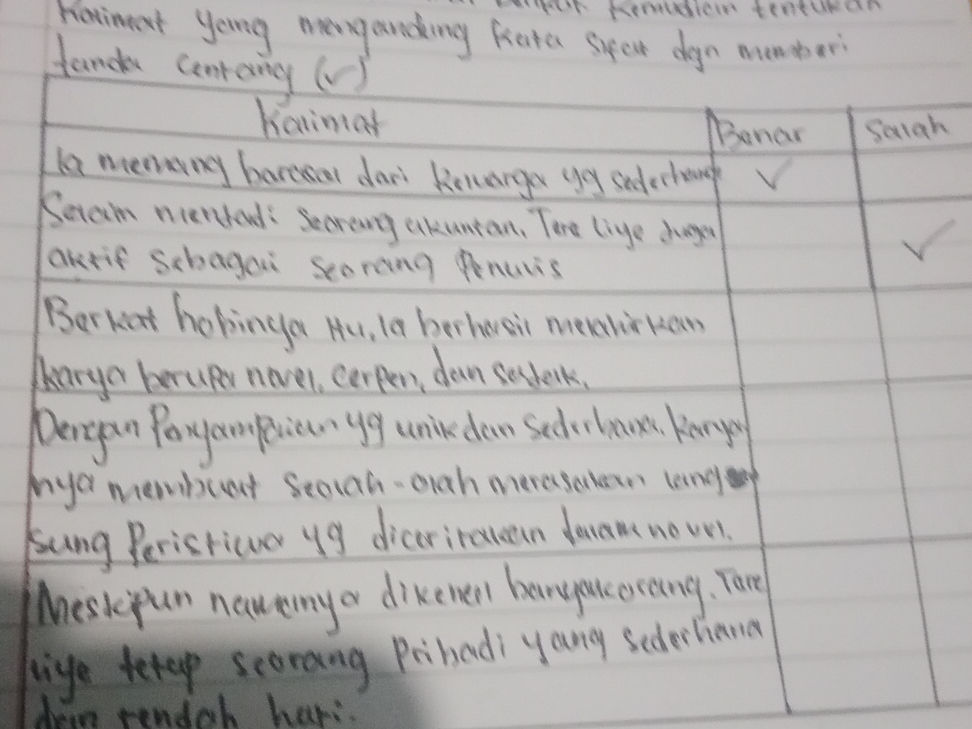 kemudian tentukan
Kalimat yang mengandung kata sifat dgn memberi
tanda centang (✓)
Kalimat Benar Salah
Ia memang berasal dari keluarga yg sederhana ✓
Selain menjadi seorang akuntan, Tere Liye juga
aktif sebagai seorang penulis ✓
Berkat hobinya itu, Ia berhasil melahirkan
karya berupa novel, cerpen, dan
Dengan Penyampaian yg unik dan sederhana, karya
nya membuat seolah-olah merasakan lang
sung Peristiwa yg diceritakan dalam novel.
Meskipun namanya dikenal banyak orang, Tere
liye tetap seorang pribadi yang sederhana
dan rendah hati.